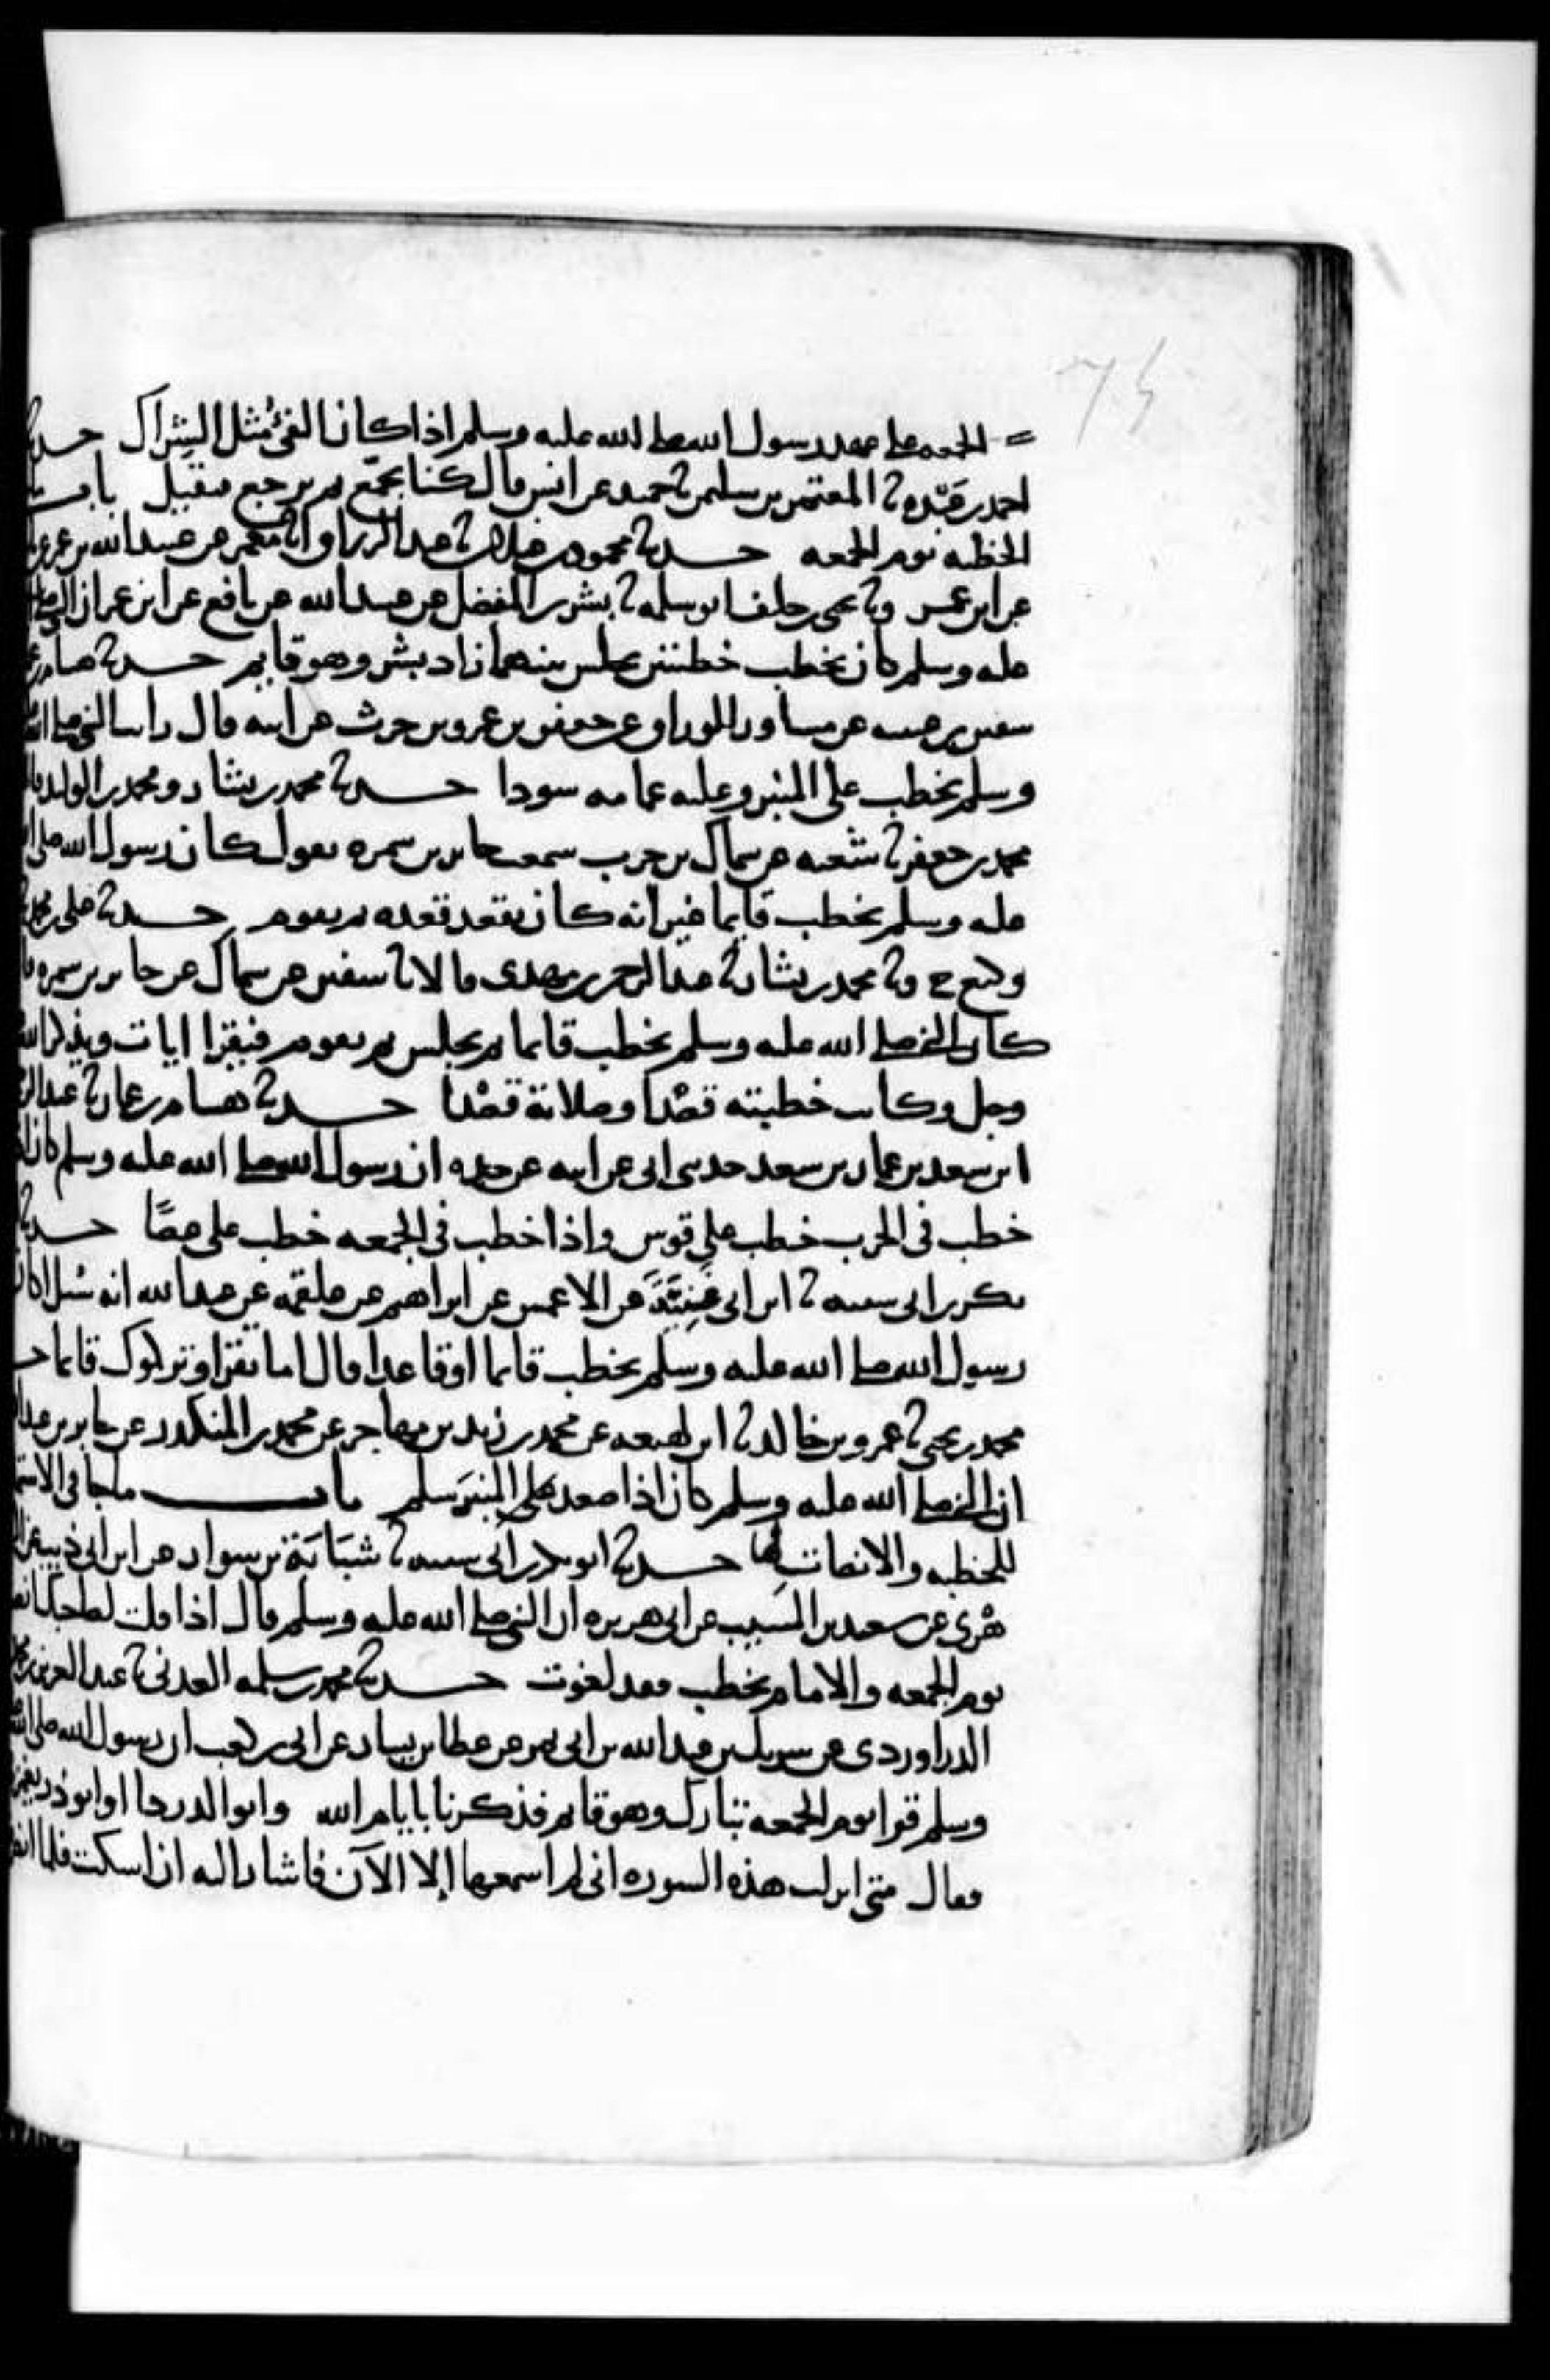 75
الجمعه على عهد رسول الله صلى الله عليه وسلم اذا كان الفئ مثل الشراك حدثنا
احمد بن عبده ثنا المعتمر بن سليمن ثنا حميد عن انس قال كنا نجمع ثم نرجع فنقيل باب
الخطبه يوم الجمعه حدثنا محمود بن غيلان ثنا عبد الرزاق انا معمر عن عبيد الله بن عمر عن
عن ابن عمر وثنا يحيى بن خلف ابو سلمه ثنا بشر بن المفضل عن عبيد الله عن نافع عن ابن عمر ان النبي صلى
عليه وسلم كان يخطب خطبتين يجلس بينهما زاد بشر وهو قايم حدثنا هشام بن
سفين بن عيينه عن مساور الوراق عن جعفر بن عمرو بن حريث عن ابيه قال رايت النبي صلى الله
وسلم يخطب على المنبر وعليه عمامه سودا حدثنا محمد بن بشار ومحمد بن الوليد قالا
محمد بن جعفر ثنا شعبه عن سماك بن حرب سمعت جابر بن سمره يقول كان رسول الله صلى
عليه وسلم يخطب قايما غير انه كان يقعد قعده ثم يقوم حدثنا على بن محمد
وكيع ح وثنا محمد بن بشار ثنا عبد الرحمن بن مهدى قالا ثنا سفين عن سماك عن جابر بن سمره
كان النبي صلى الله عليه وسلم يخطب قايما ثم يجلس ثم يقوم فيقرا ايات ويذكر الله
وجل وكانت خطبته قصْدا وصلاتة قصْدا حدثنا هشام بن عمار ثنا عبد
ابن سعد بن عمار بن سعد حدثنى ابى عن ابيه عن جده ان رسول الله صلى الله عليه وسلم كان
خطب فى الحرب خطب على قوس واذا خطب فى الجمعه خطب على عصًا حدثنا
بكر بن ابى شيبه ثنا ابن ابى غَنِيَّةَ عن الاعمش عن ابراهيم عن علقمه عن عبد الله انه سُئل اكان
رسول الله صلى الله عليه وسلم يخطب قايما او قاعدا قال اما تقرا وتركوك قايما
محمد بن يحيى ثنا عمرو بن خالد ثنا ابن لهيعه عن محمد بن زيد بن مهاجر عن محمد بن المنكدر عن جابر بن عبد
ان النبي صلى الله عليه وسلم كان اذا صعد على المنبر سلم باب ماجا فى
للخطبه والانصات لها حدثنا ابو بكر بن ابى شيبه ثنا شَبَابَة بن سوار عن ابن ابى ذيب
هْرى عن سعيد بن المسَيِب عن ابى هريره ان النبي صلى الله عليه وسلم قال اذا قلت لصاحبك
يوم الجمعه والامام يخطب فقد لغوت حدثنا محمد بن سلمه العدنى ثنا عبد العزيز بن
الدراوردى عن شريك بن عبد الله بن ابى نمر عن عطا بن يسار عن ابى بن كعب ان رسول الله صلى الله
وسلم قرا يوم الجمعه تبارك وهو قايم فذكرنا بايام الله وابو الدردا او ابو ذر
فقال متى انزلت هذه السوره انى لم اسمعها إلا الآن فاشار اليه ان اسكت فلما